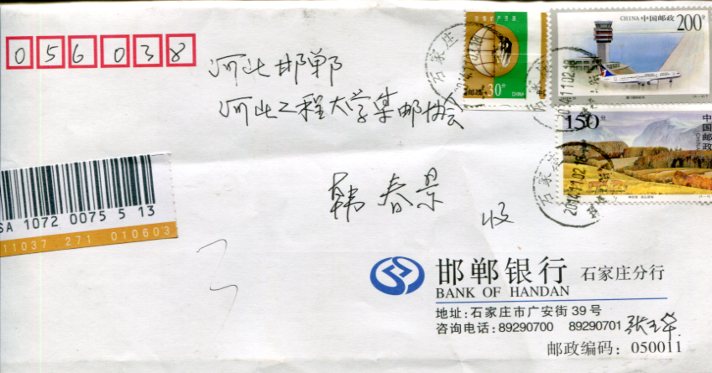 056038
河北邯郸
河北工程大学集邮协会
韩春景 收
30分
CHINA 中国邮政 200分
150分
中国邮政
石家庄
2014.11.02.18
SA 1072 0075 5 13
11037 271 010603
邯郸银行 石家庄分行
BANK OF HANDAN
地址:石家庄市广安街39号
咨询电话:89290700 89290701 张玉华
邮政编码:050011